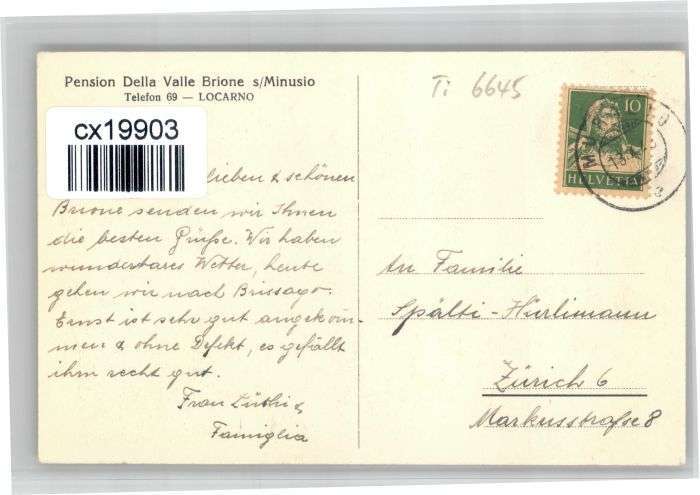 Pension Della Valle Brione s/Minusio
Telefon 69 — LOCARNO
cx19903
lieben & schönen
Brione senden wir Ihnen
die besten Grüße. Wir haben
wunderbares Wetter, heute
gehen wir nach Brissago.
Ernst ist sehr gut angekom-
men & ohne Defekt, es gefällt
ihm recht gut.
Frau Lüthi &
Famiglia
Ti 6645
10
HELVETIA
An Familie
Spälti-Hürlimann
Zürich 6
Markusstraße 8